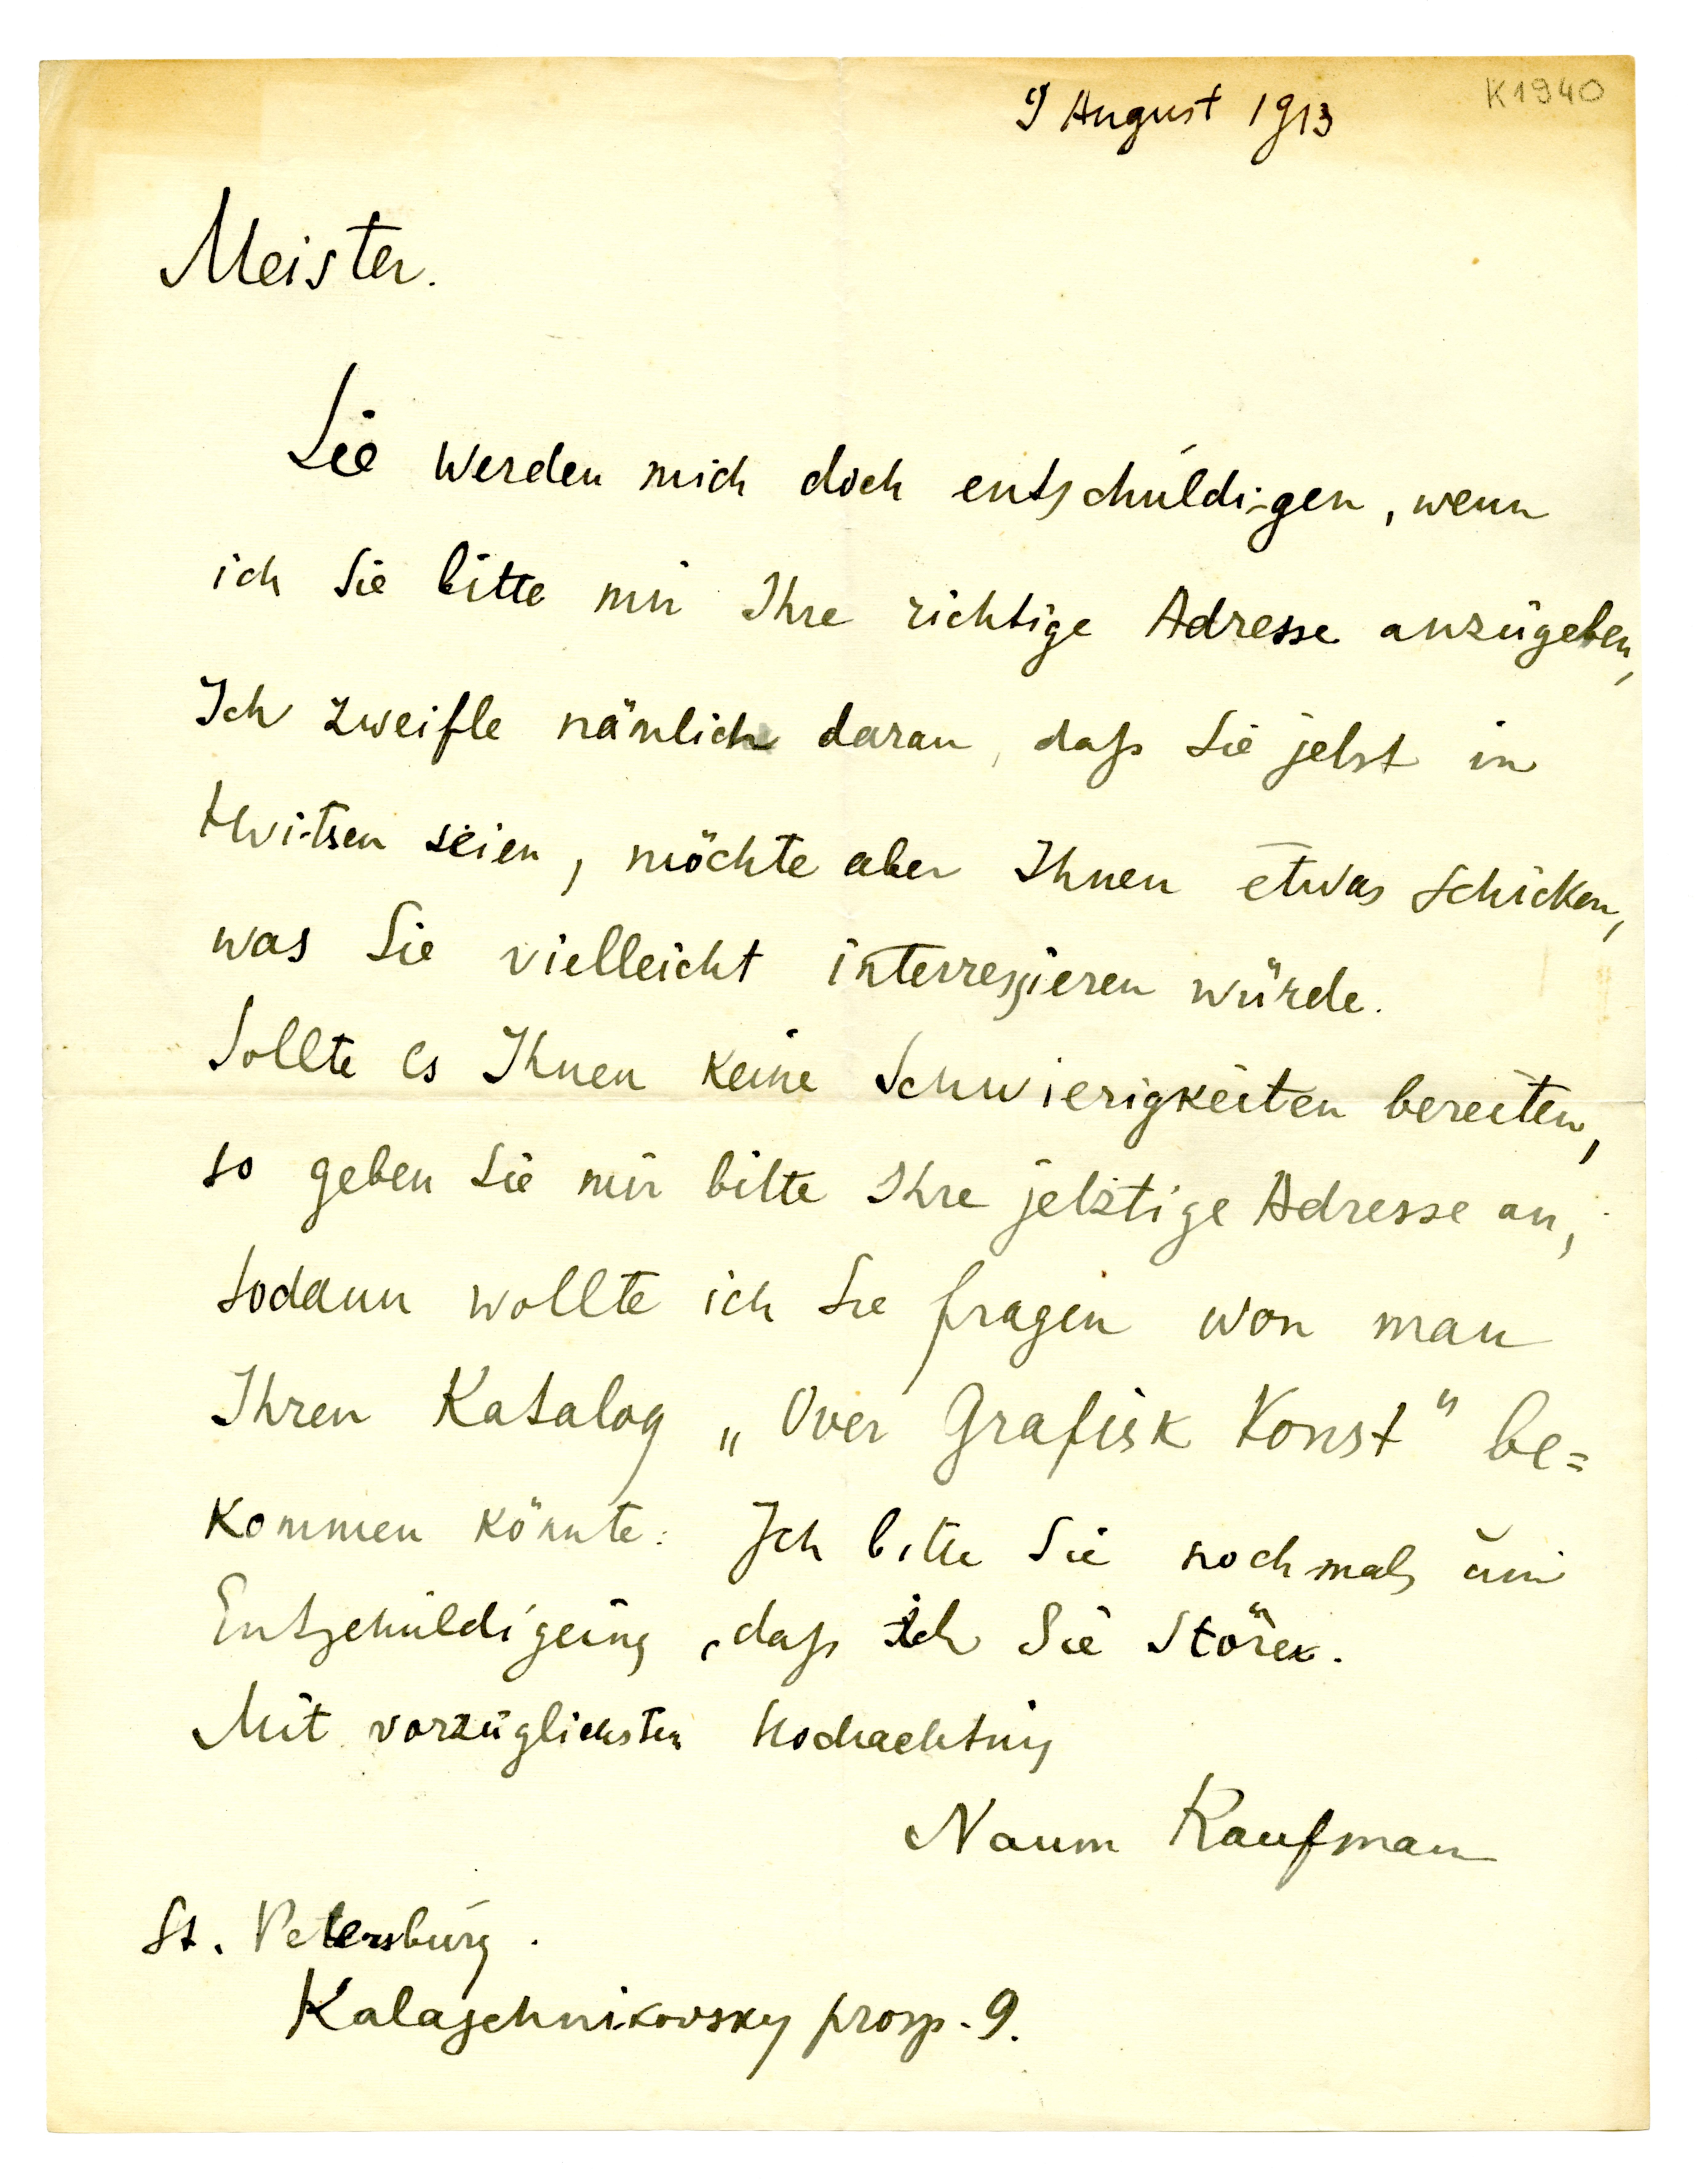 K1940
9 August 1913
Meister.
Sie werden mich doch entschuldigen, wenn
ich Sie bitte mir Ihre richtige Adresse anzugeben,
Ich zweifle nämlich daran, daß Sie jetzt in
Hvitsen seien, möchte aber Ihnen etwas schicken,
was Sie vielleicht interressieren würde.
Sollte es Ihnen keine Schwierigkeiten bereiten,
so geben Sie mir bitte Ihre jetztige Adresse an,
sodann wollte ich Sie fragen won man
Ihren Katalog „Over Grafisk Konst“ be=
kommen könnte. Ich bitte Sie nochmals um
Entschuldigung, daß ich Sie störe.
Mit vorzüglichsten Hochachtung
Naum Kaufman
St. Petersburg.
Kalaschnikovsky prosp. 9.